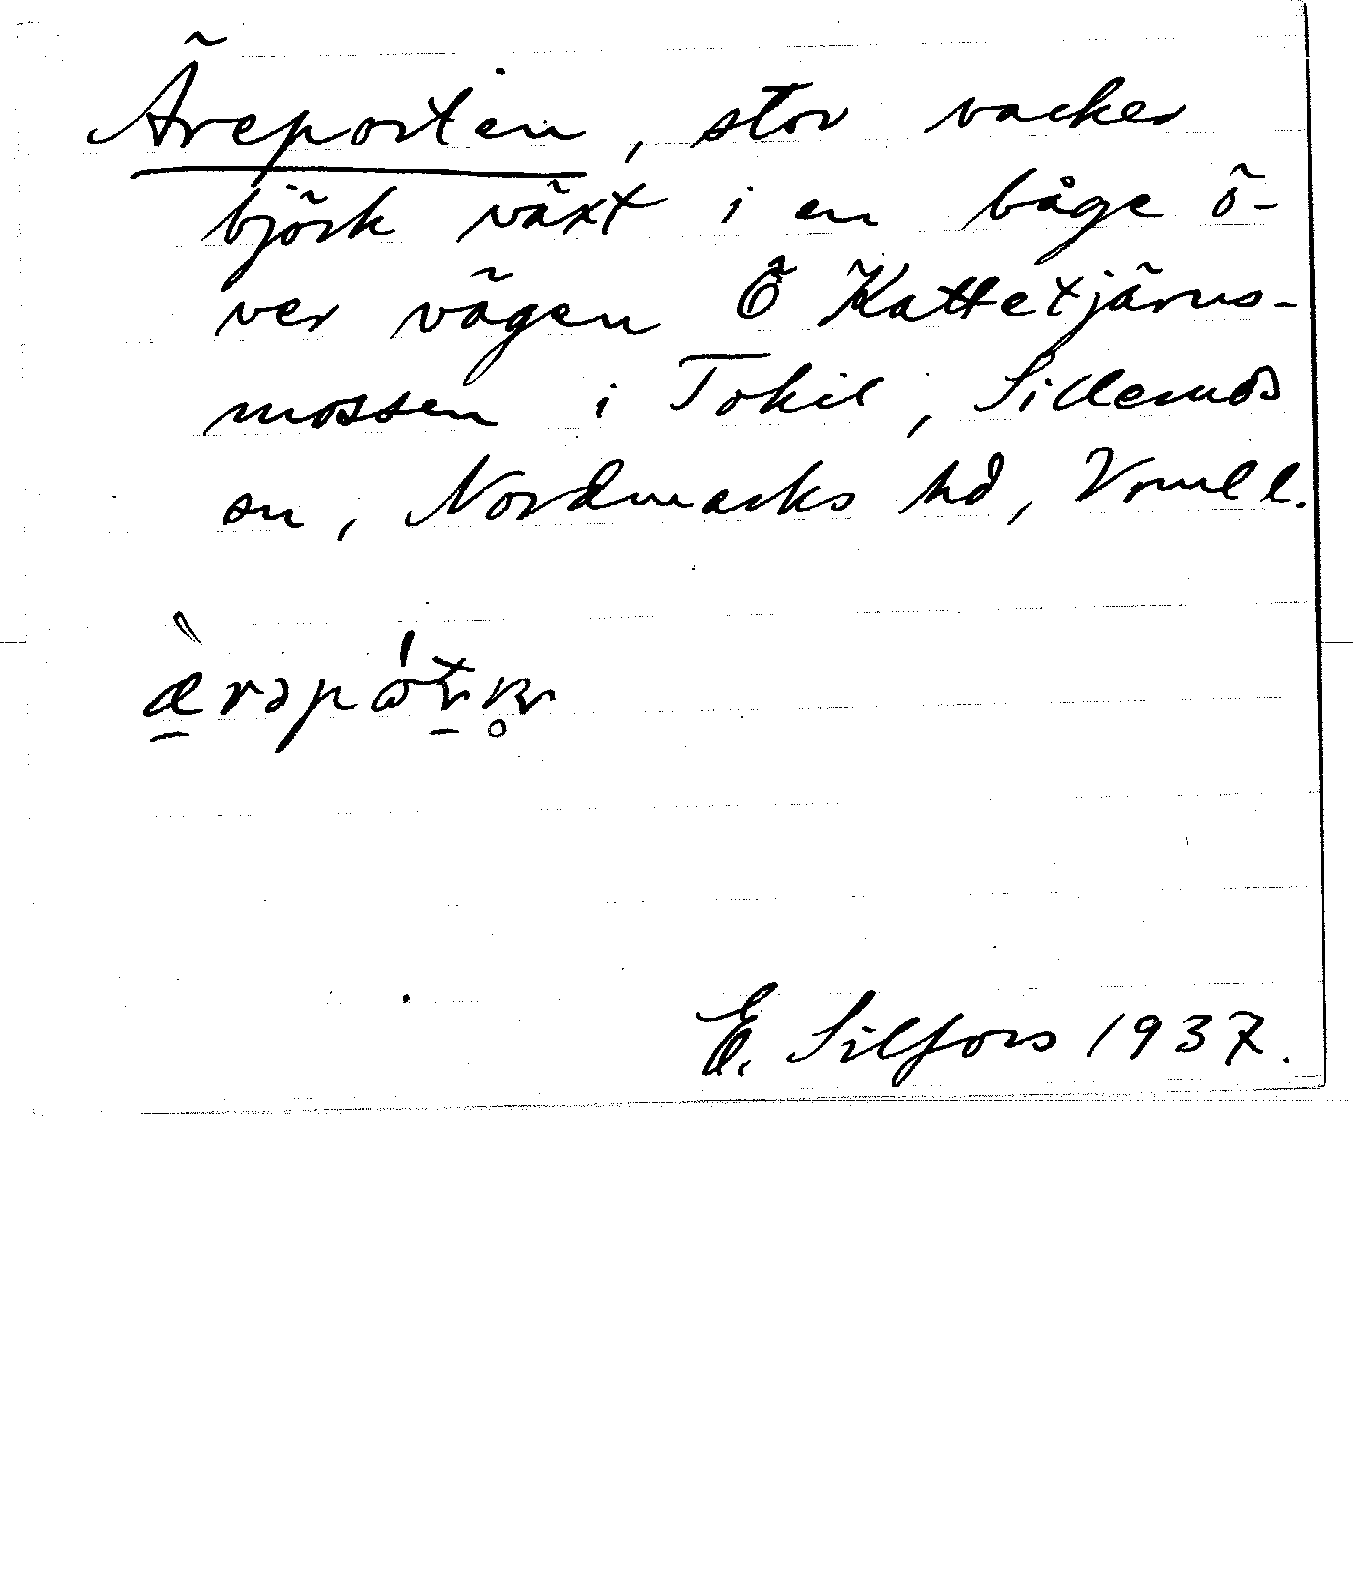 Äreporten, stor vacker
björk växt i en båge ö-
ver vägen Ö Kattetjärns-
mossen i Tokil, Sillerud
sn, Nordmarks hd, Vrml.
ærəpɷ́
E. Silfors 1937.